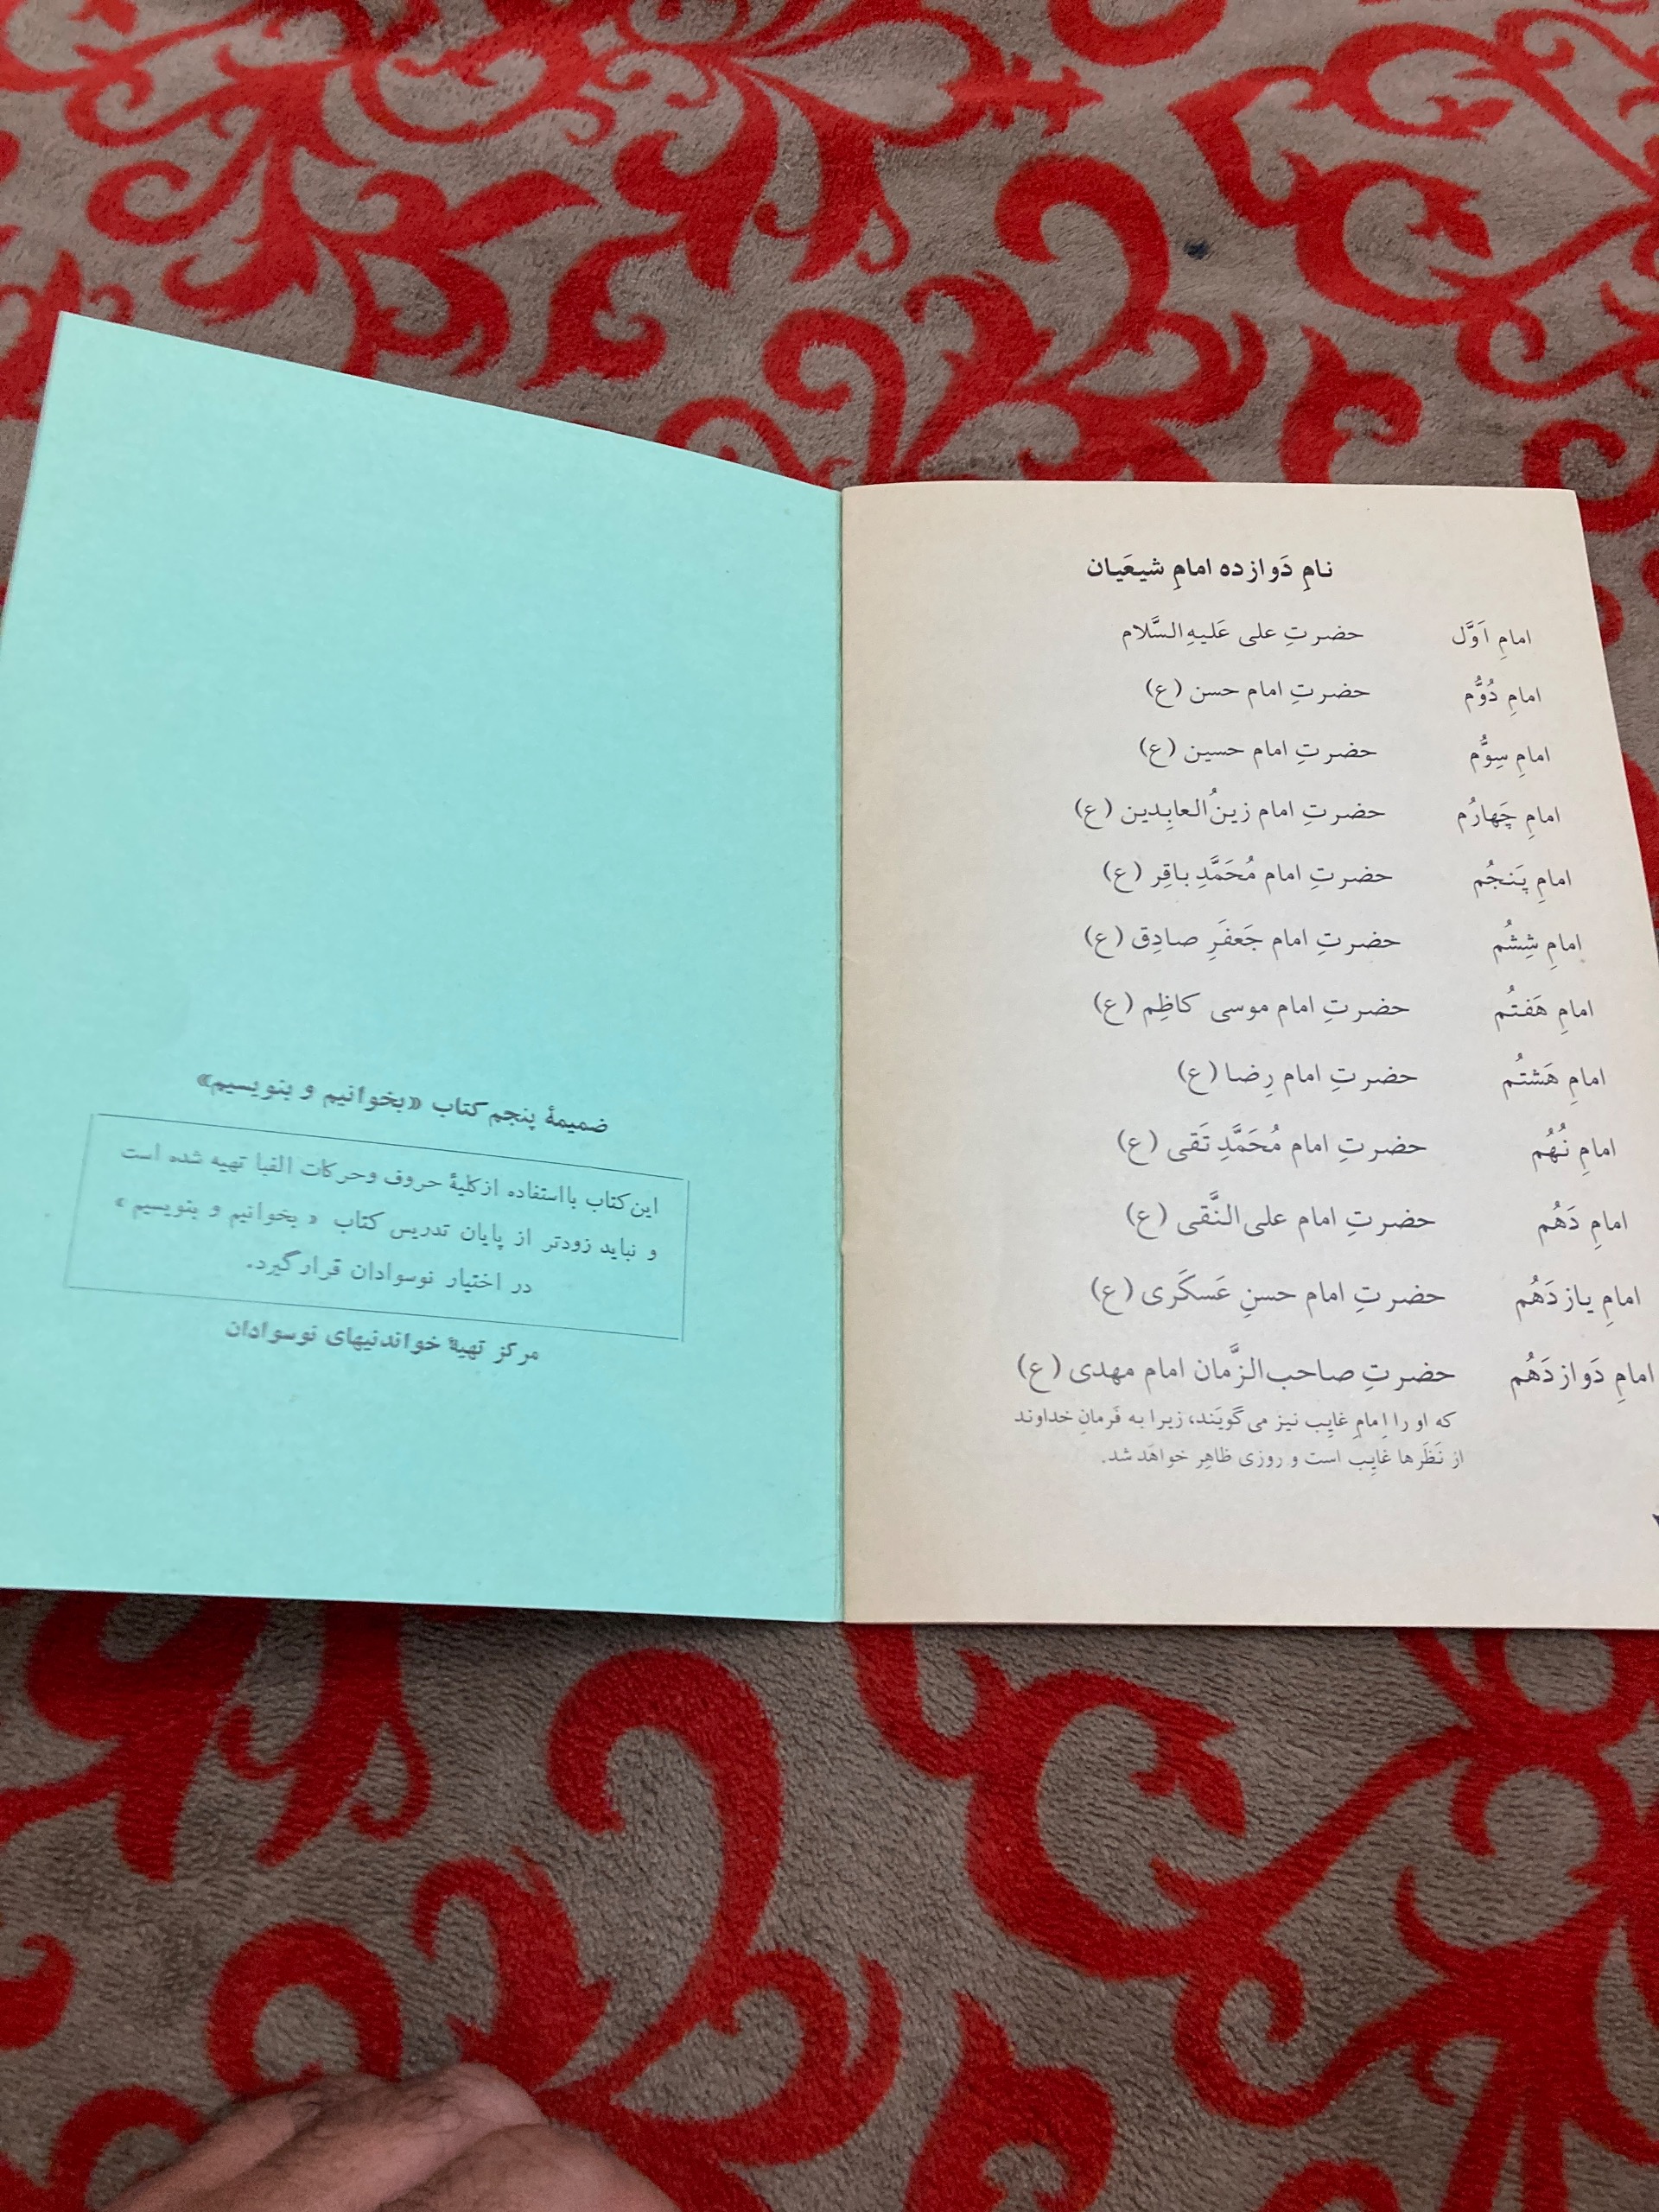 نامِ دَوازده امامِ شیعَیان
امامِ اَوَّل حضرتِ علی عَلیهِ‌السَّلام
امامِ دُوُّم حضرتِ امام حسن (ع)
امامِ سِوُّم حضرتِ امام حسین (ع)
امامِ چَهارُم حضرتِ امام زینُ‌العابِدین (ع)
امامِ پَنجُم حضرتِ امام مُحَمَّدِ باقِر (ع)
امامِ شِشُم حضرتِ امام جَعفَرِ صادِق (ع)
امامِ هَفتُم حضرتِ امام موسی کاظِم (ع)
امامِ هَشتُم حضرتِ امام رِضا (ع)
امامِ نُهُم حضرتِ امام مُحَمَّدِ تَقی (ع)
امامِ دَهُم حضرتِ امام علی‌النَّقی (ع)
امامِ یازدَهُم حضرتِ امام حسنِ عَسکَری (ع)
امامِ دَوازدَهُم حضرتِ صاحب‌الزَّمان امام مهدی (ع)
که او را اِمامِ غایِب نیز می‌گویَند، زیرا به فَرمانِ خداوند
از نَظَرها غایِب است و روزی ظاهِر خواهَد شد.
ضمیمهٔ پنجم کتاب «بخوانیم و بنویسیم»
این کتاب با استفاده از کلیهٔ حروف و حرکات الفبا تهیه شده است
و نباید زودتر از پایان تدریس کتاب «بخوانیم و بنویسیم»
در اختیار نوسوادان قرار گیرد.
مرکز تهیهٔ خواندنیهای نوسوادان